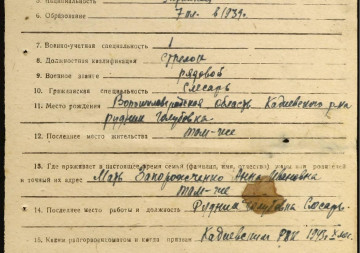 5. Национальность
6. Образование 7 кл. в 1939 г.
7. Военно-учетная специальность 1
8. Должностная квалификация стрелок
9. Военное звание рядовой
10. Гражданская специальность Слесарь
11. Место рождения Ворошиловградская область Кадиевский р-н
рудник Голубовка
12. Последнее место жительства там-же
13. Где проживает в настоящее время семья (фамилия, имя, отчество) жены или родителей
и точный их адрес Мать Захорошченко Анна Ивановна
там-же
14. Последнее место работы и должность Рудник Голубовка Слесарь
15. Каким райгорвоенкоматом и когда призван Кадиевским РВК 1943 г.